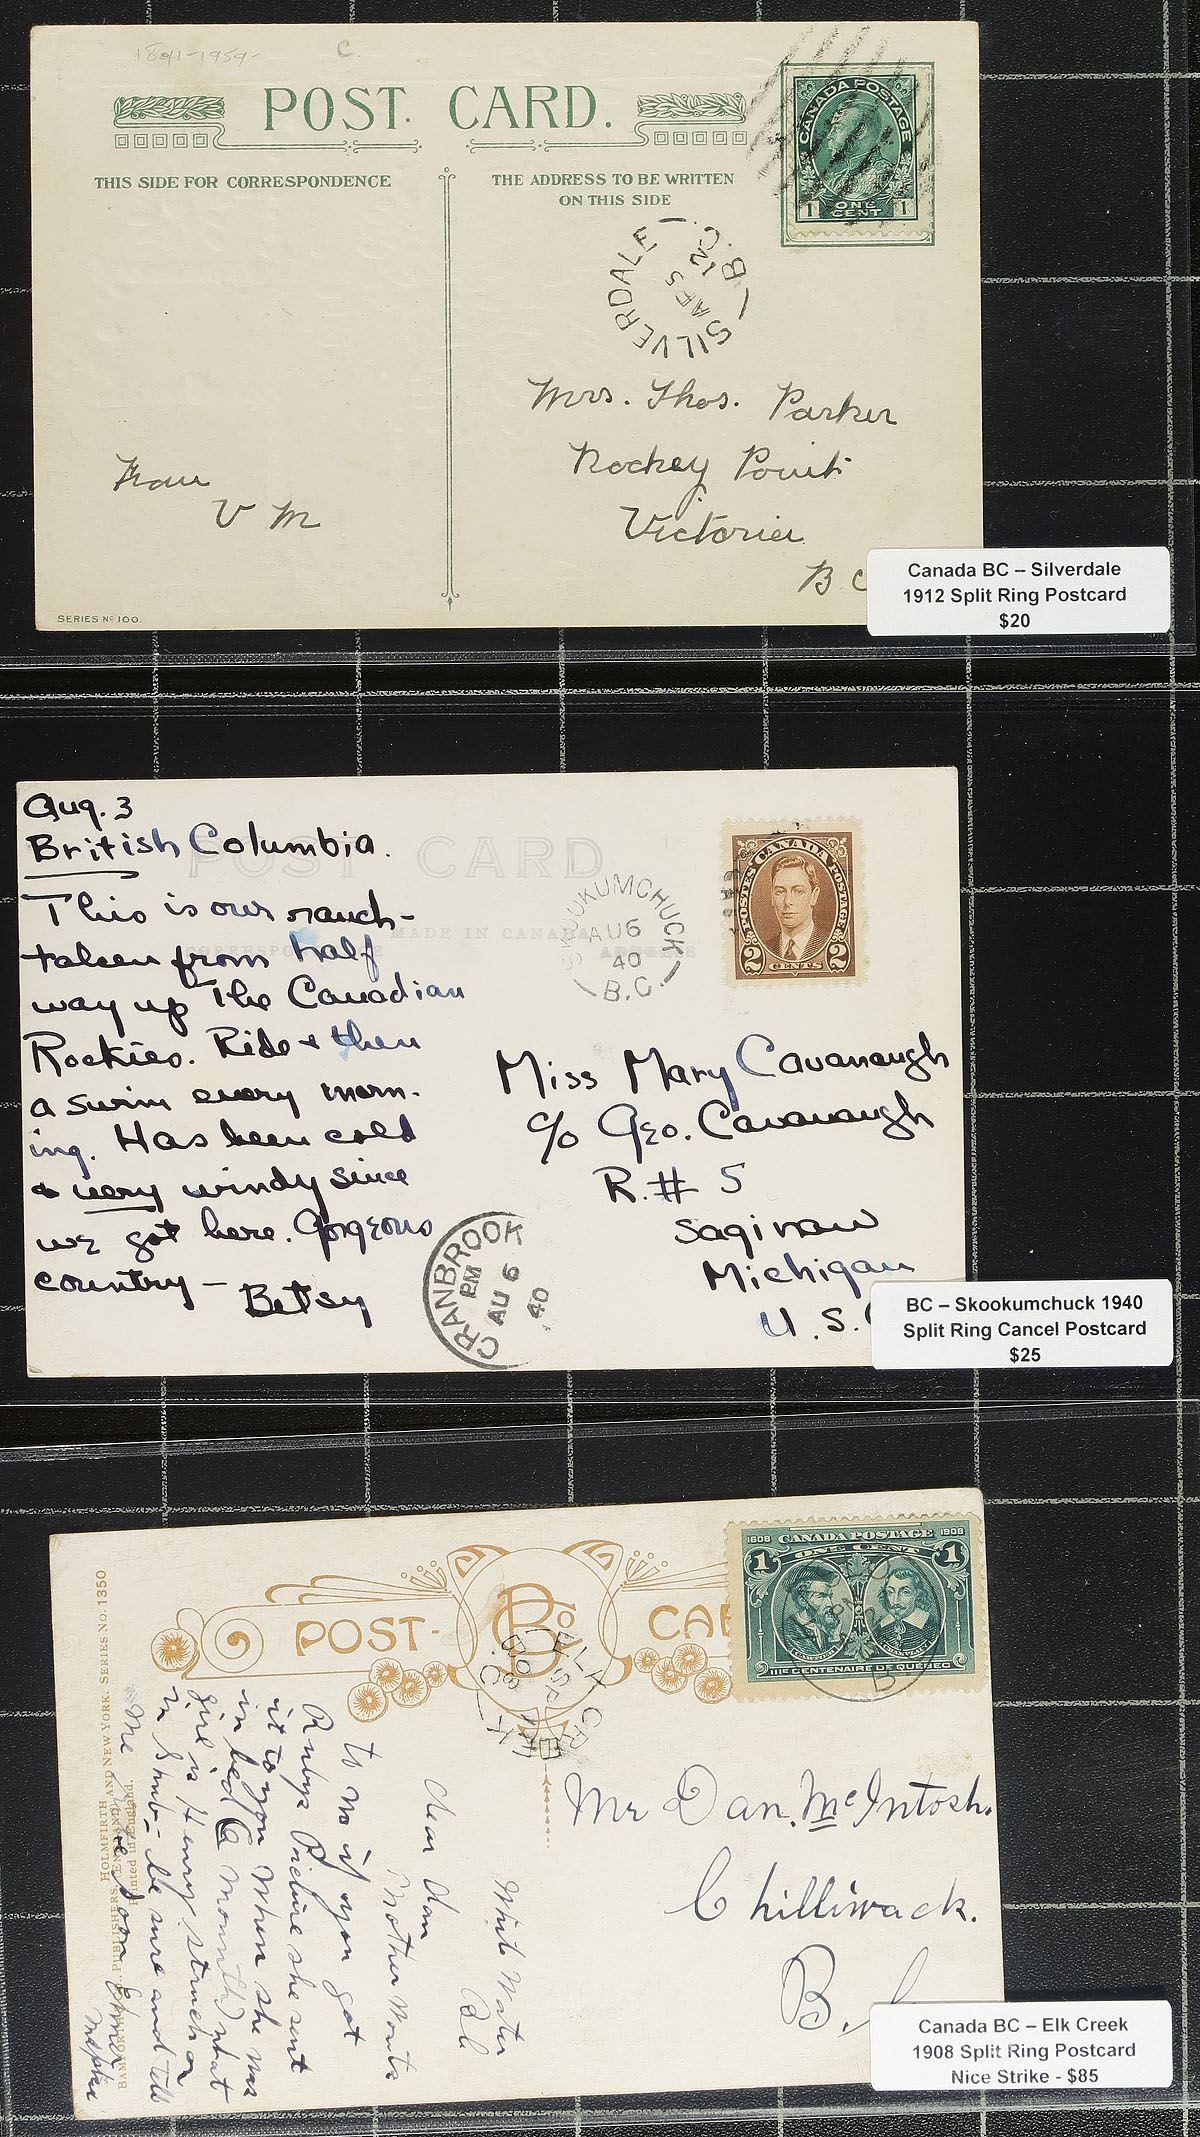 1891-1959-
C.
POST CARD.
THIS SIDE FOR CORRESPONDENCE
THE ADDRESS TO BE WRITTEN
ON THIS SIDE
CANADA POSTAGE
1 ONE CENT 1
SILVERDALE
B.C.
12
Mrs. Thos. Parker
Rockey Point
Victoria
B C
From
V M
SERIES No 100.
Canada BC – Silverdale
1912 Split Ring Postcard
$20
Aug. 3
British Columbia.
POST CARD
MADE IN CANADA
CORRESPONDENCE
ADDRESS
This is our ranch-
taken from half
way up the Canadian
Rockies. Ride & then
a swim every morn-
ing. Has been cold
& very windy since
we got here. Gorgeous
country –
Betsy
SKOOKUMCHUCK
AU 6
40
B.C.
CANADA
POSTES POSTAGE
2 CENTS 2
Miss Mary Cavanaugh
c/o Geo. Cavanaugh
R. # 5
Saginaw
Michigan
U. S.
CRANBROOK
PM
AU 6
40
BC – Skookumchuck 1940
Split Ring Cancel Postcard
$25
POST-
CAR
1608 CANADA POSTAGE 1908
1 ONE CENT 1
IIIE CENTENAIRE DE QUÉBEC
ELK CREEK
SP
08
B.C.
White Water
Dear Dan
Mother wants
to no if you got
Rubys Picture she sent
it to you when she was
in bed (a mounth) what
girl is Henry struck on
be sure and tell
Me
soon
HOLMFIRTH
AND NEW YORK. SERIES NO. 1350
PUBLISHERS,
Printed in England.
Mr Dan. McIntosh.
Chilliwack.
B.
Canada BC – Elk Creek
1908 Split Ring Postcard
Nice Strike - $85